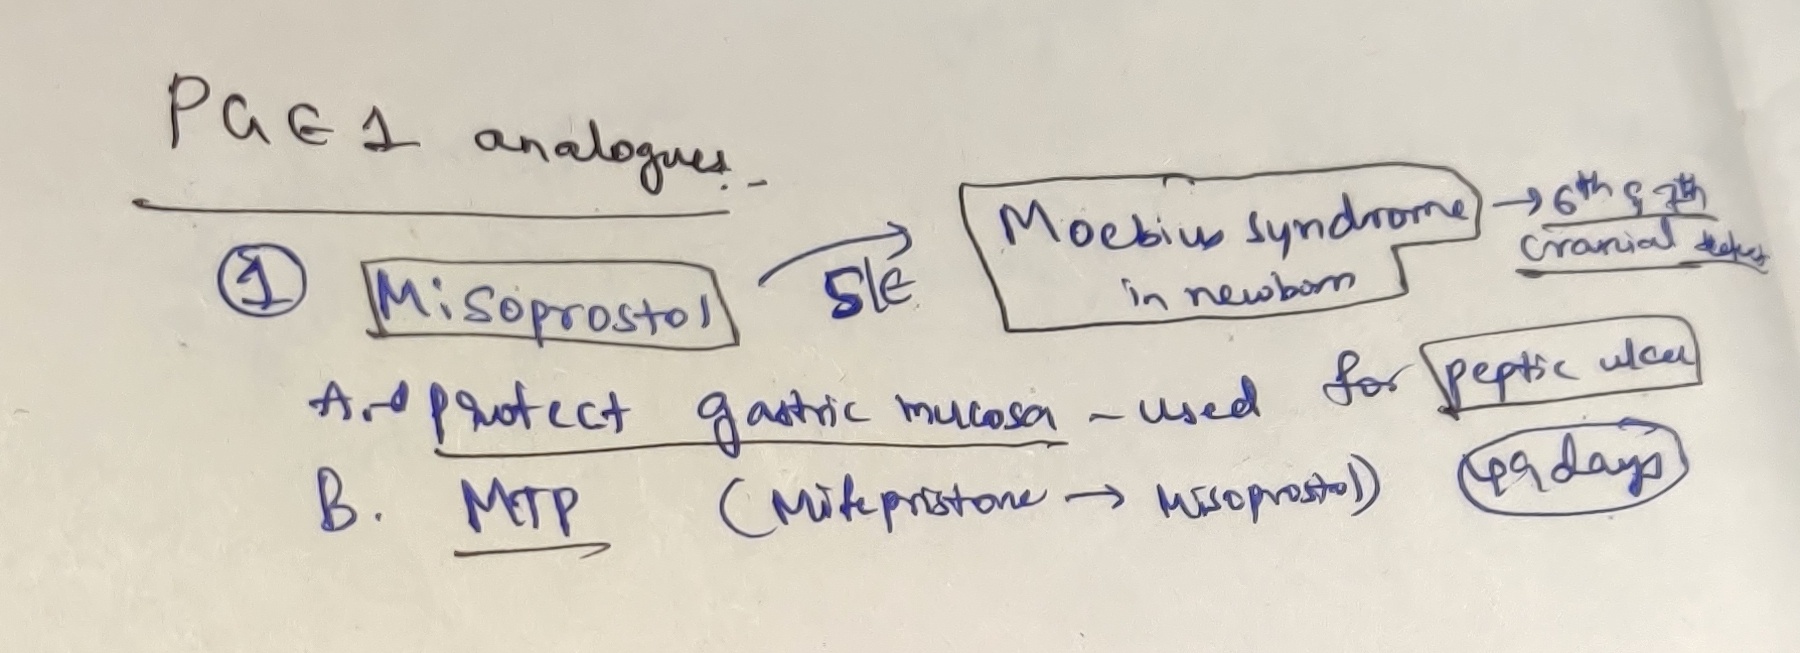 PGE1 analogues.-
① Misoprostol S/E Moebius syndrome in newborn → 6th & 7th cranial defect
A. → protect gastric mucosa - used for peptic ulcer
B. MTP (Mifepristone → Misoprostol) 49 days